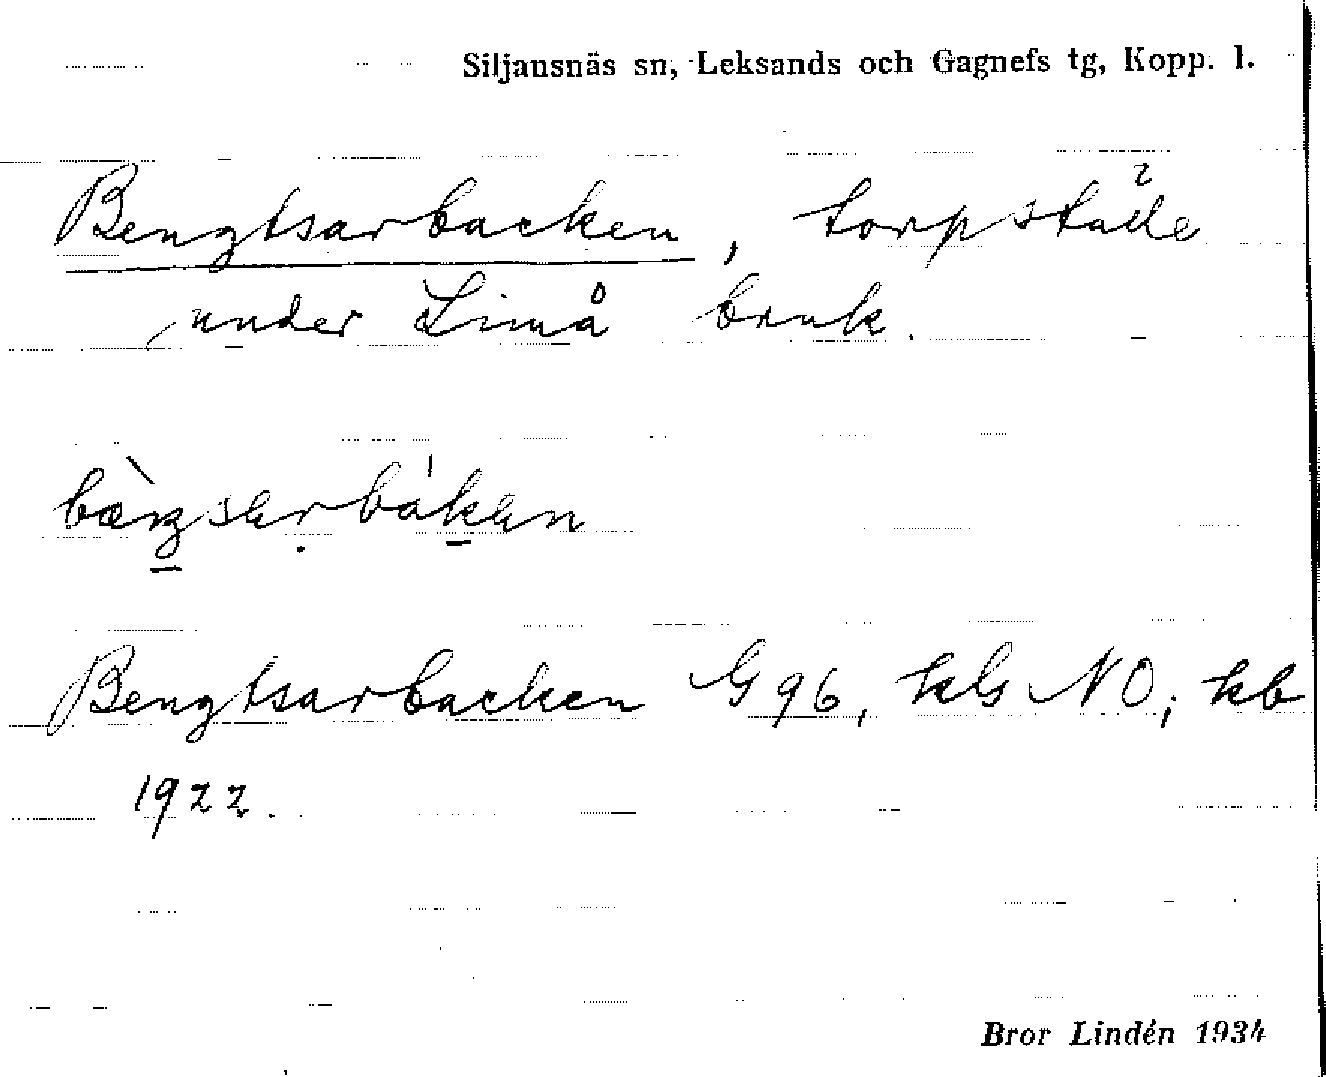 Siljansnäs sn, Leksands och Gagnefs tg, Kopp. l.
Bengtsarbacken, torpställe
under Limå bruk.
bæ̀ŋsarbákan
Bengtsarbacken G 96, kls NO; kb
1922.
Bror Lindén 1934